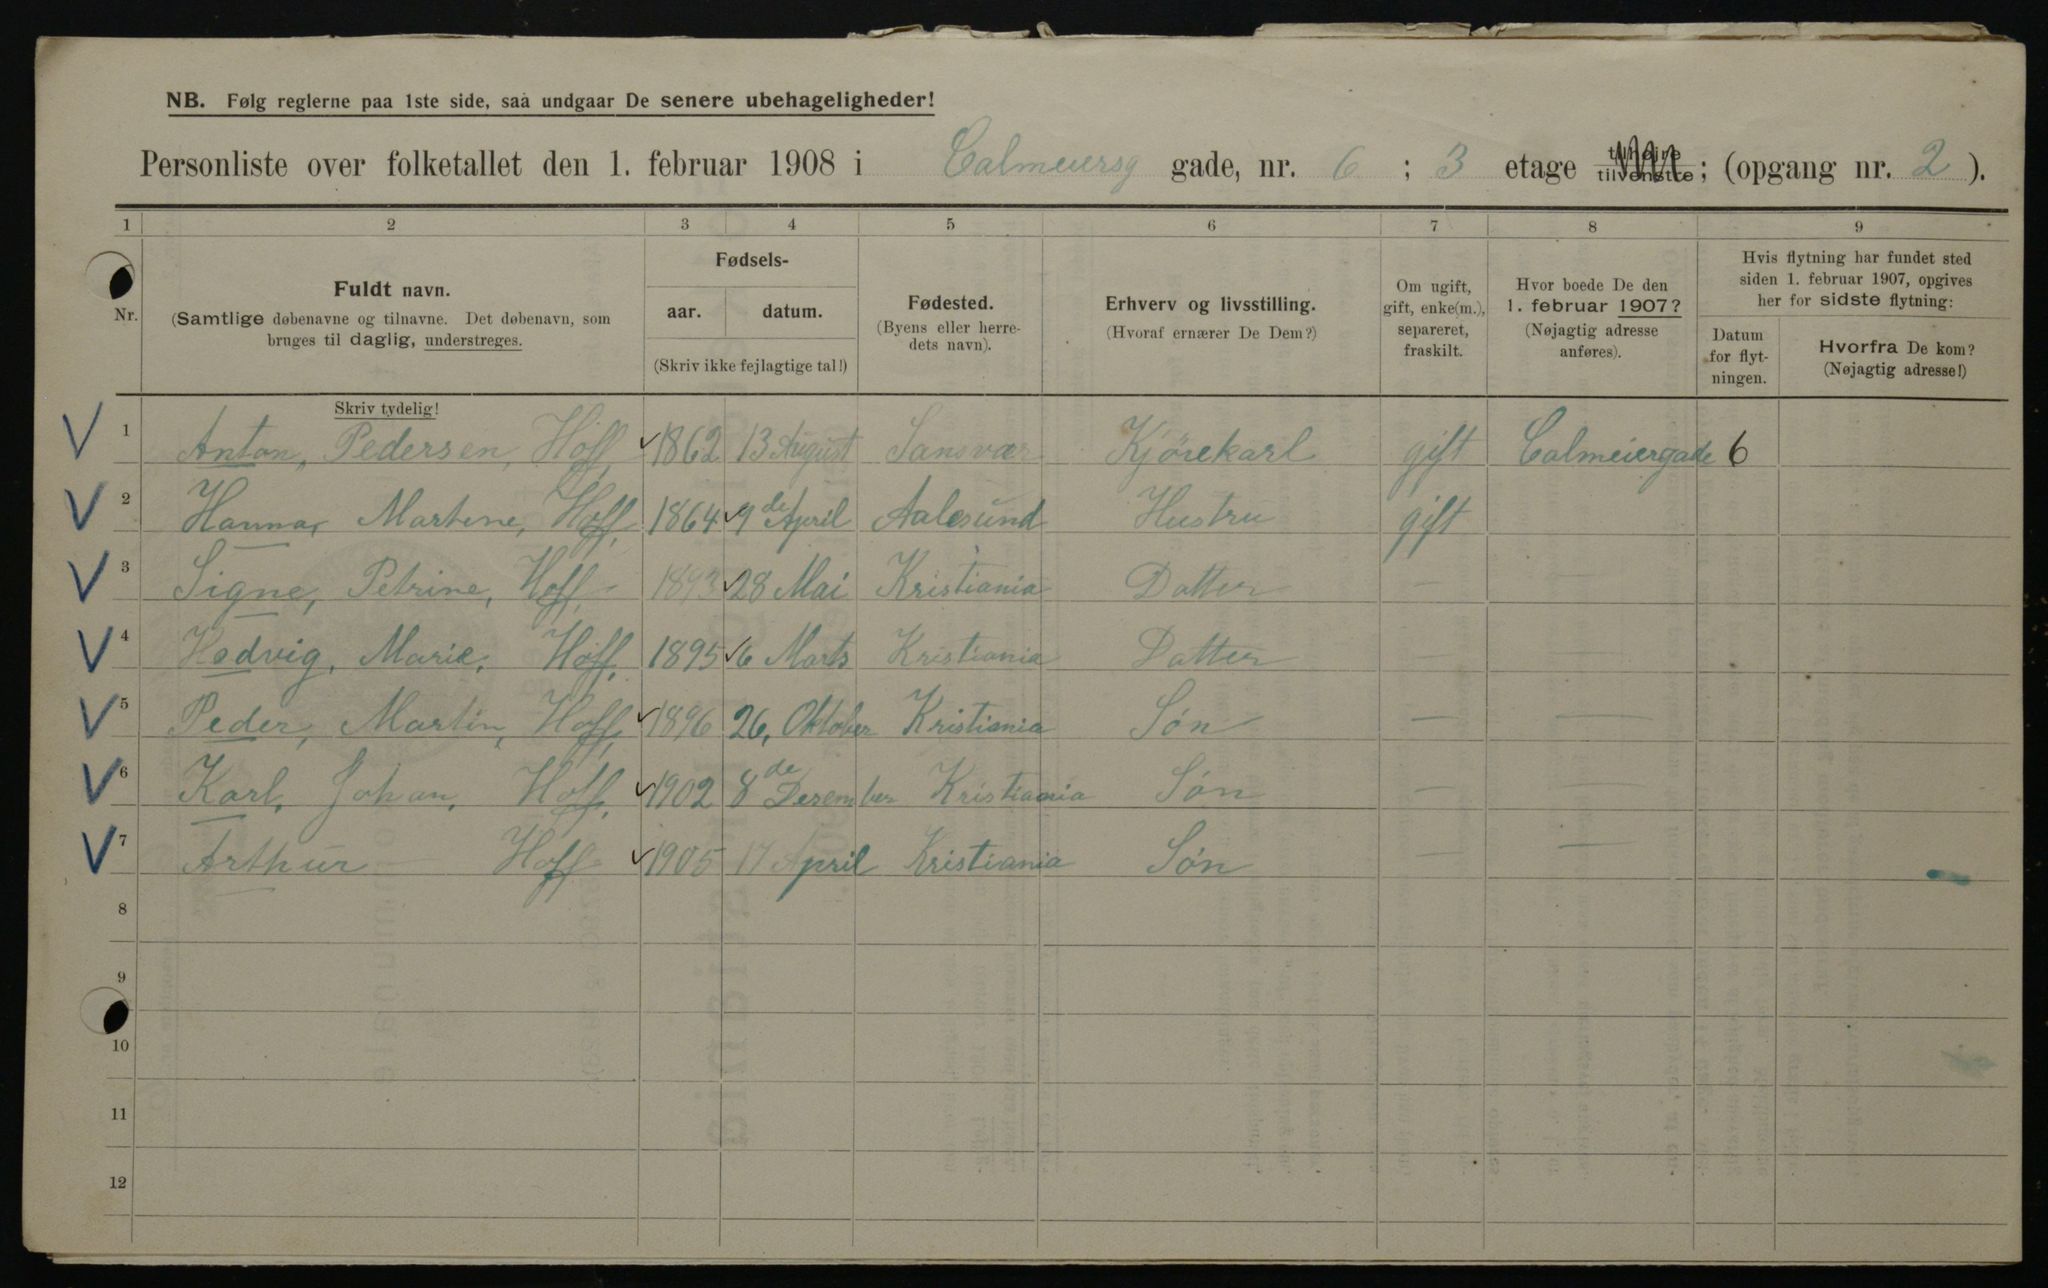 NB. Følg reglerne paa 1ste side, saa undgaar De senere ubehageligheder!
Personliste over folketallet den 1. februar 1908 i Calmeiersg gade, nr. 6 ; 3 etage tilhøire tilvenstre ; (opgang nr. 2 ).
1 2 3 4 5 6 7 8 9
Nr. Fuldt navn. (Samtlige døbenavne og tilnavne. Det døbenavn, som bruges til daglig, understreges.
Skriv tydelig!
Fødsels-
aar. datum.
(Skriv ikke fejlagtige tal!)
Fødested. (Byens eller herredets navn).
Erhverv og livsstilling. (Hvoraf ernærer De Dem?)
Om ugift, gift, enke(m.), separeret, fraskilt.
Hvor boede De den 1. februar 1907? (Nøjagtig adresse anføres).
Hvis flytning har fundet sted siden 1. februar 1907, opgives her for sidste flytning:
Datum for flytningen.
Hvorfra De kom? (Nøjagtig adresse!)
V 1 Anton, Pedersen, Hoff 1862 13 August Sansvær Kjörekarl gift Calmeiergade 6
V 2 Hanna, Martine, Hoff, 1864 9 de April Aalesund Hustru gift
V 3 Signe, Petrine, Hoff, 1893 28 Mai Kristiania Datter — —
V 4 Hedvig, Marie, Hoff, 1895 6 Marts Kristiania Datter — —
V 5 Peder, Martin, Hoff, 1896 26, Oktober Kristiania Són — —
V 6 Karl, Johan, Hoff, 1902 8 de Desember Kristiania Són — —
V 7 Arthur — Hoff 1905 17 April Kristiania Són — —
8
9
10
11
12